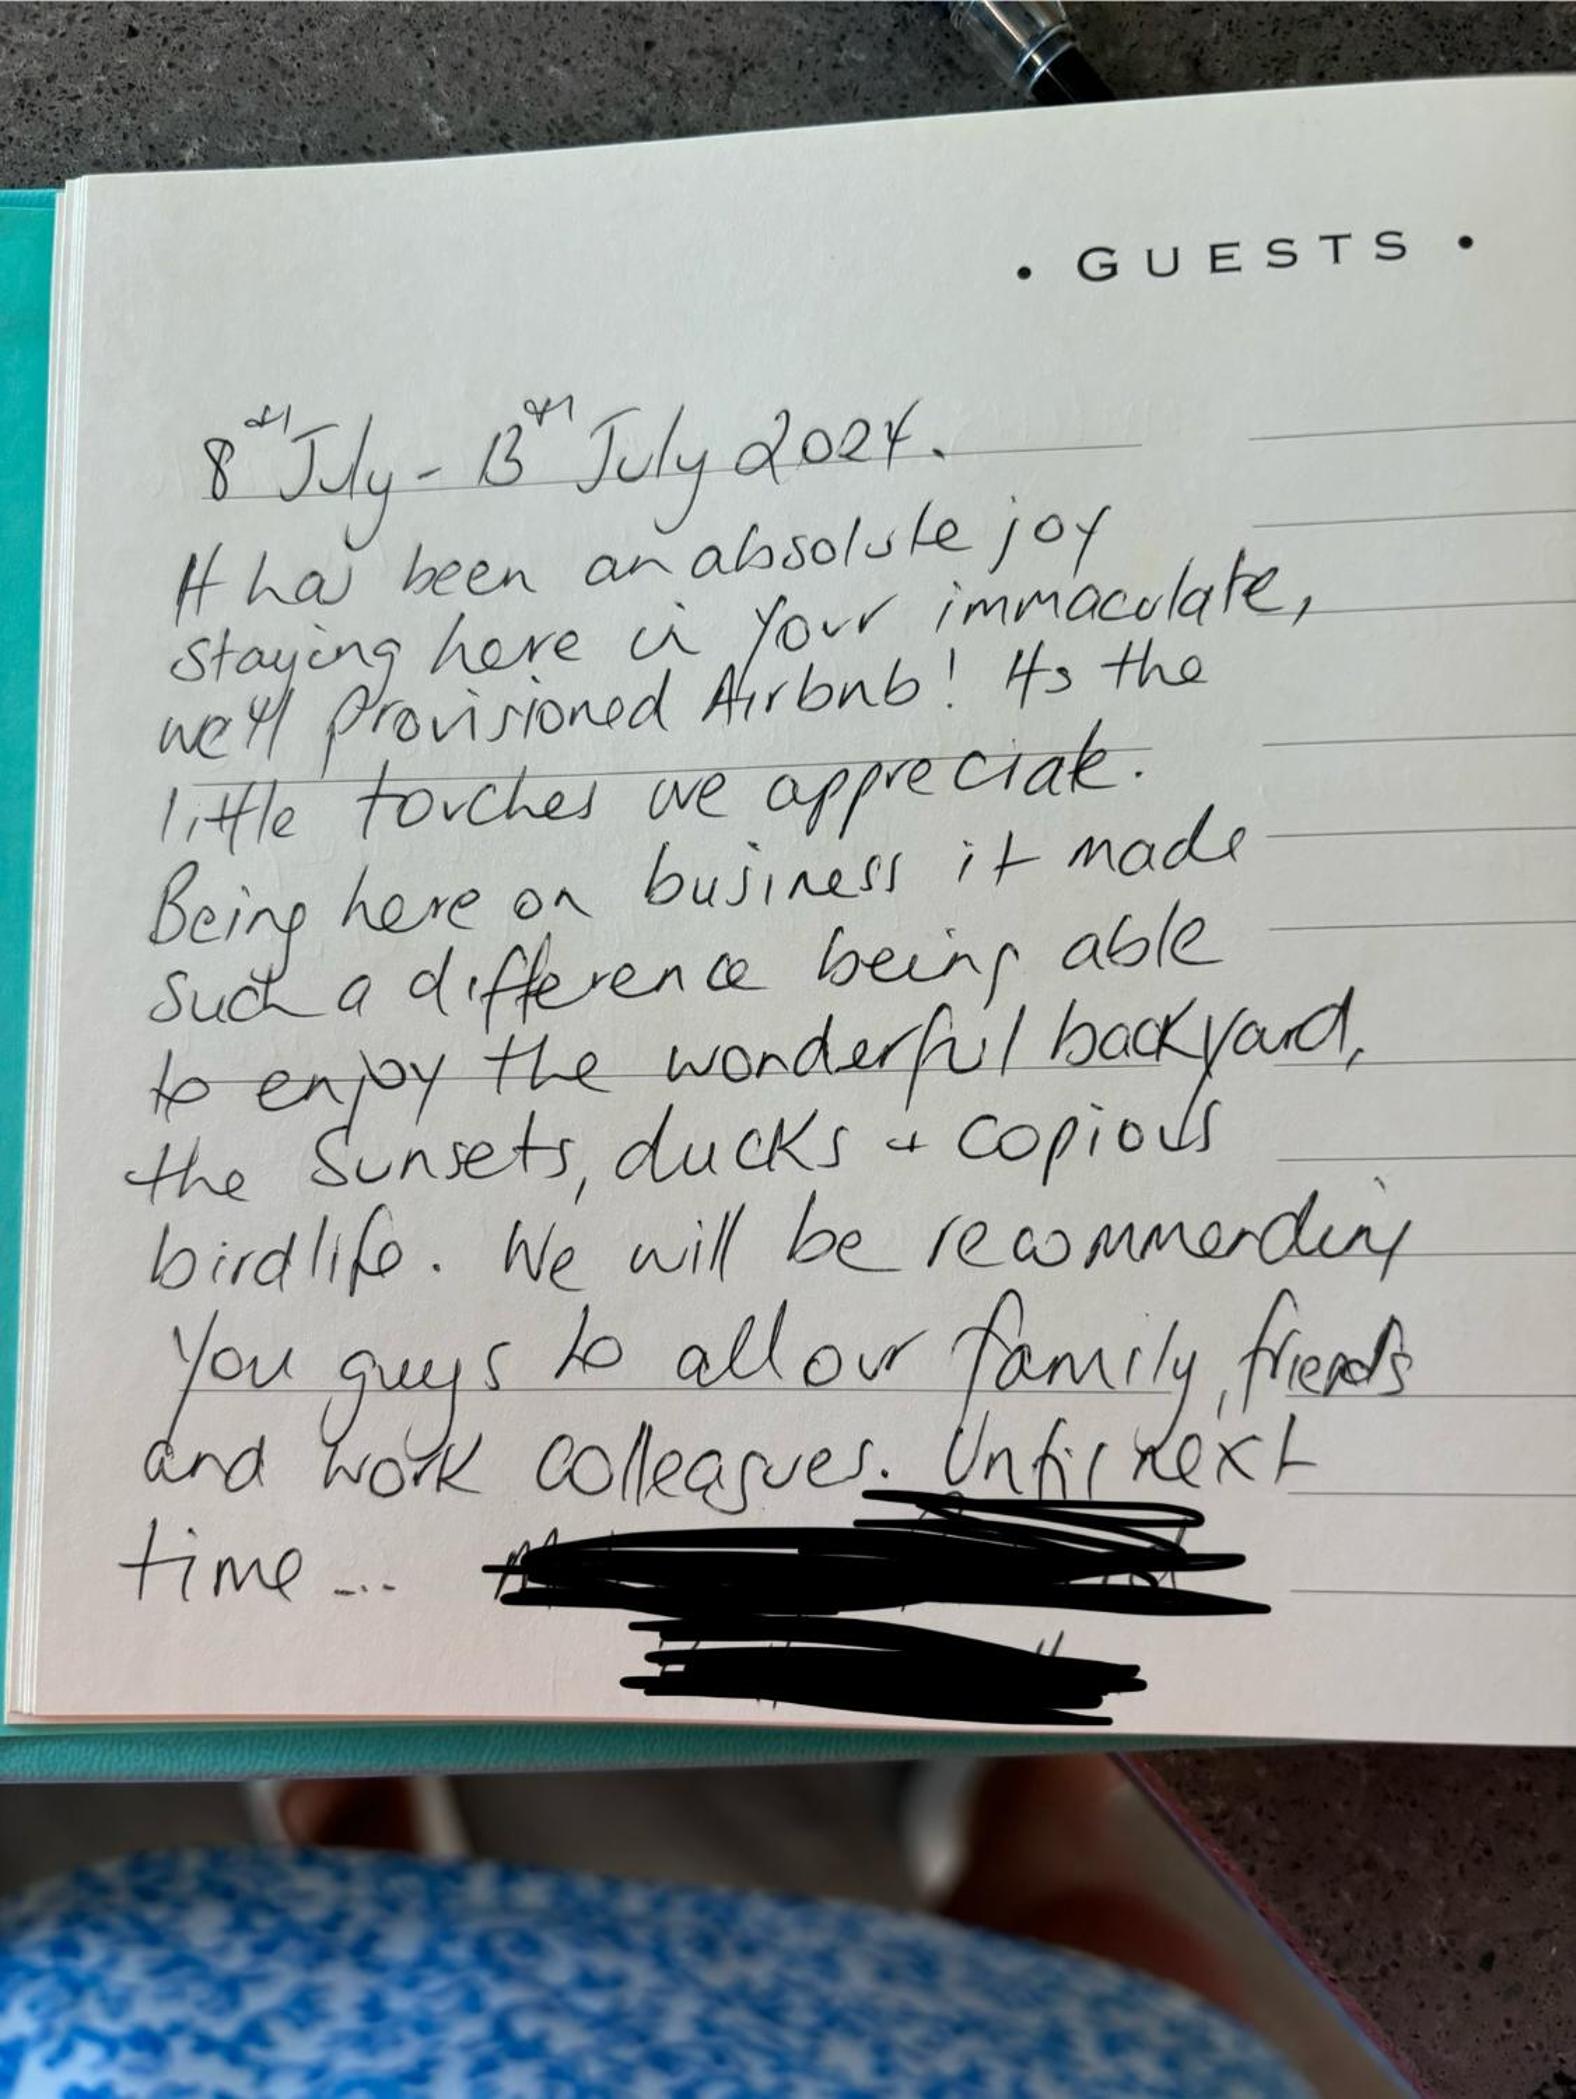 • GUESTS •
8th July - 13th July 2024.
It has been an absolute joy
staying here in your immaculate,
well provisioned Airbnb! Its the
little touches we appreciate.
Being here on business it made
such a difference being able
to enjoy the wonderful backyard,
the sunsets, ducks + copious
birdlife. We will be recommending
you guys to all our family, friends
and work colleagues. Until next
time...